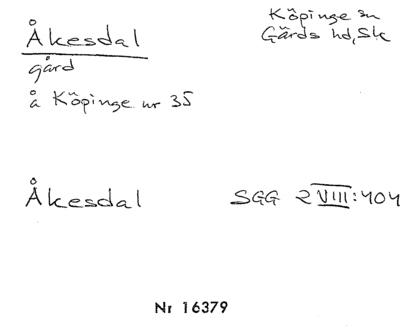 Åkesdal
gård
å Köpinge nr 35
Köpinge sn
Gärds hd, Sk
Åkesdal
SGG 2 VIII:404
Nr 16379